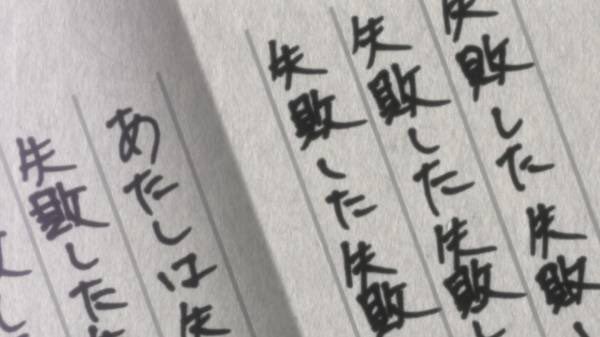 失敗した失敗し
失敗した失敗し
失敗した失敗
あたしは失
失敗した